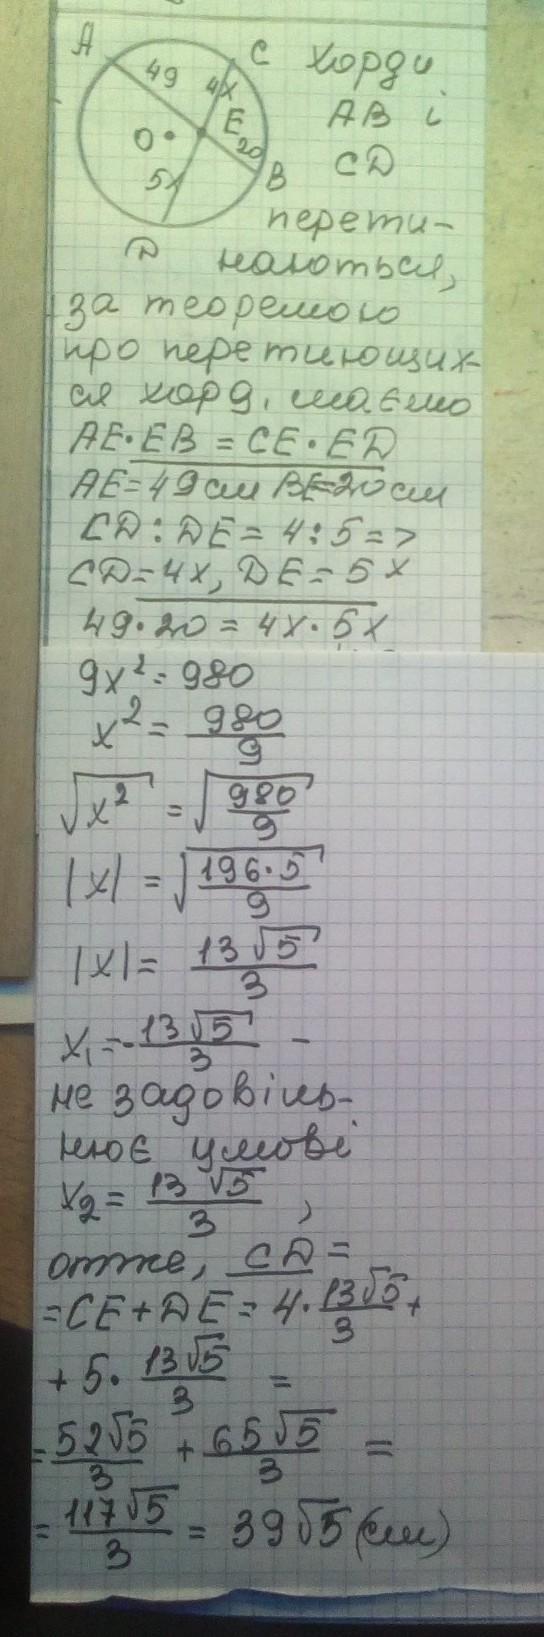 A
C
49
4x
E
20
O
5x
B
D
хорди
AB і
CD
перети-
наються,
за теоремою
про перетиющих-
ся хорд, маємо
AE·EB = CE·ED
AE=49см BE=20см
CD:DE=4:5=>
CD=4x, DE=5x
49·20=4x·5x
9x²=980
x²=980/9
√x² = √(980/9)
|x| = √(196·5/9)
|x| = 13√5/3
x₁=-13√5/3 –
не задовіль-
нює умові
x₂=13√5/3,
отже, CD=
=CE+DE=4·13√5/3+
+5·13√5/3=
=52√5/3+65√5/3=
=117√5/3=39√5(см)